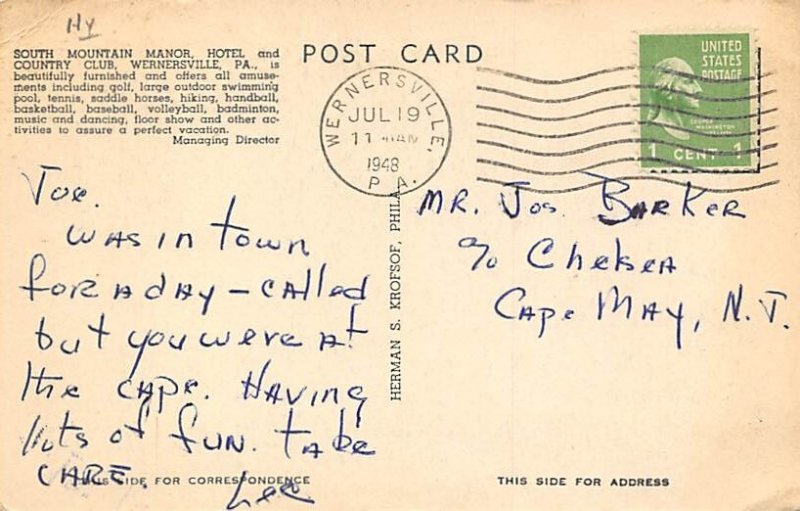 Hy
SOUTH MOUNTAIN MANOR, HOTEL and
COUNTRY CLUB, WERNERSVILLE, PA., is
beautifully furnished and offers all amuse-
ments including golf, large outdoor swimming
pool, tennis, saddle horses, hiking, handball,
basketball, baseball, volleyball, badminton,
music and dancing, floor show and other ac-
tivities to assure a perfect vacation.
Managing Director
POST CARD
WERNERSVILLE,
JUL 19
11 AM
1948
PA.
UNITED
STATES
POSTAGE
GEORGE
WASHINGTON
1 CENT 1
Joe.
WAS IN town
FOR A DAY – CALLED
but you were At
the CAPE. HAVING
lots of fun. take
CARE.
Lee
HERMAN S. KROFSOF, PHILA.
MR. Jos. BARKER
c/o Chelsea
Cape MAY, N.J.
THIS SIDE FOR CORRESPONDENCE
THIS SIDE FOR ADDRESS